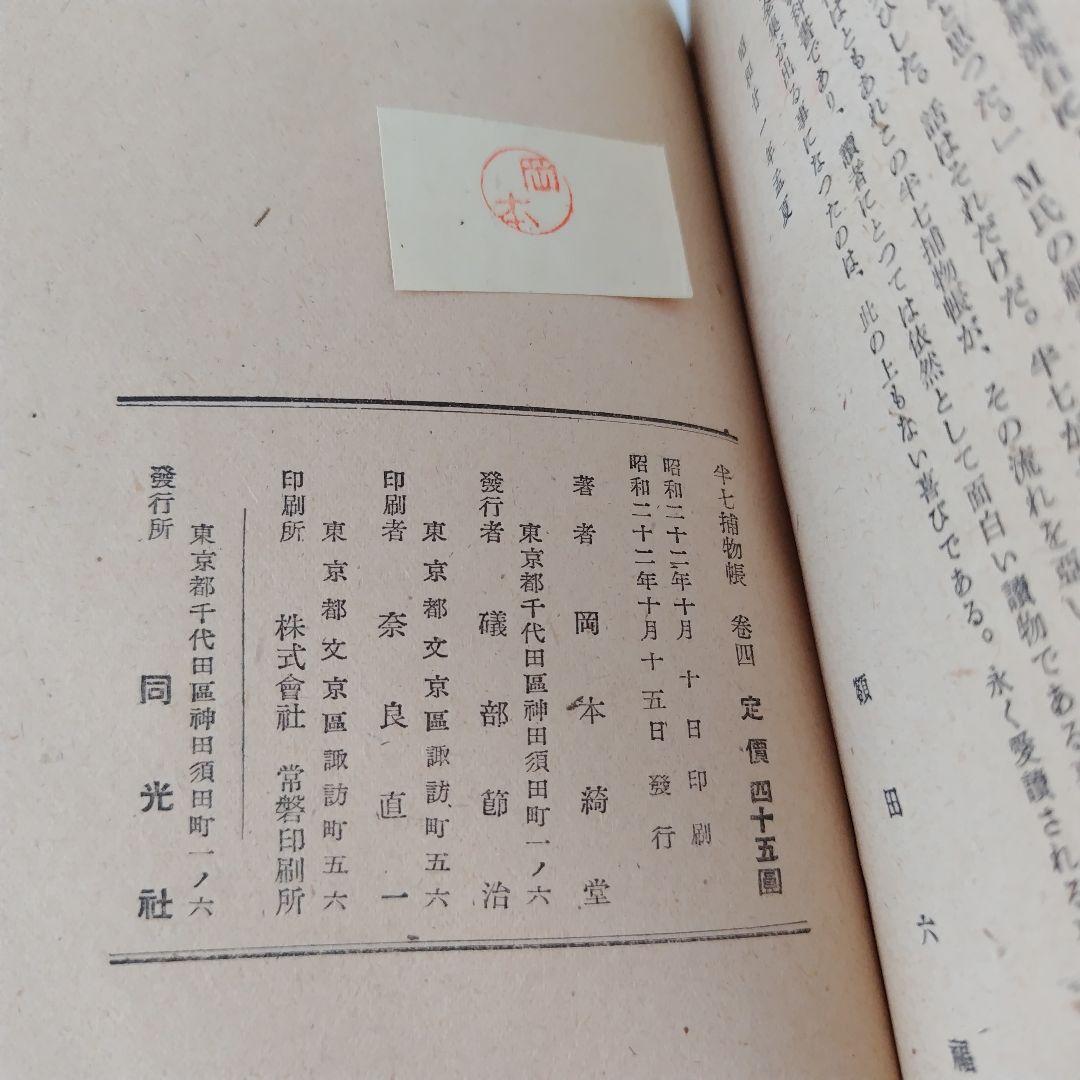 と思つた。」M氏の
ひした。話はそれだけだ。半七が
はともあれこの半七捕物帳が、その流れを亞い
科書であり、讀者にとつては依然として面白い讀物である
全集が出る事になつたのは、此の上もない喜びである。永く愛讀される
昭和廿一年孟夏
額田六福
岡本
半七捕物帳 卷四 定價四十五圓
昭和二十二年十月十日印刷
昭和二十二年十月十五日發行
著者 岡本綺堂
東京都千代田區神田須田町一ノ六
發行者 礒部節治
東京都文京區諏訪町五六
印刷者 奈良直一
東京都文京區諏訪町五六
印刷所 株式會社 常磐印刷所
東京都千代田區神田須田町一ノ六
發行所 同光社